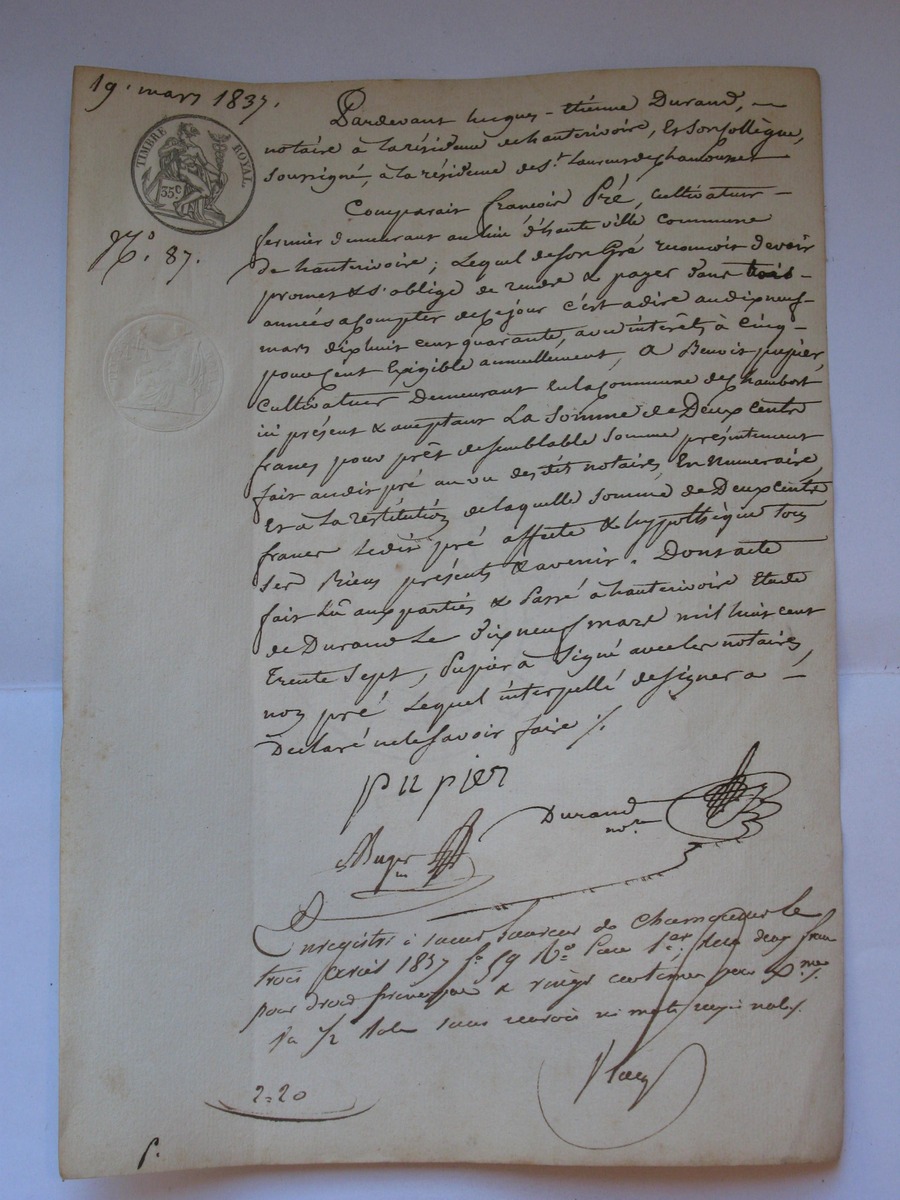 19. mars 1837.
TIMBRE ROYAL.
35c.
No. 87.
Pardevant hugues-étienne Durand, —
notaire à la résidence de hauterivoire, Et Son Collègue,
Soussigné, à la résidence de St. Laurent de chamousset
Comparait françois Pré, cultivateur —
fermier demeurant au lieu d'haute ville commune
De hauterivoire; Lequel de Son Gré reconnoit devoir
promet & S'oblige de rendre & payer Dans trois —
années a Compter de Ce jour c'est a dire au dix neuf
mars dix huit cent quarante, avec intérêts à Cinq —
pour Cent Exigible annuellement, A Benoit pupier,
Cultivateur Demeurant En la Commune de Chambost
ici présent & acceptant La Somme de Deux Cents
francs pour prêt de Semblable Somme présentement
fait audit pré au vu des dits notaires, En Numéraire,
Et à La restitution de laquelle Somme de Deux cents
francs Ledit pré affecte & hypothèque tous
Ses Biens présents & avenir. Dont acte
fait Lû aux partiés & Passé à hauterivoire Etude
de Durand Le Dix neuf mars mil huit cent
Trente Sept, Pupier à Signé avec les notaires,
non pré Lequel interpellé de Signer a —
Déclaré ne le Savoir faire ./.
pupier
Durand
nore
Enregistré à saint Laurent de Chamousset le
trois avril 1837 fo 59 Vo Case 1ere, Reçu deux francs
pour droit & vingt centimes pour Dme ./.
sans renvoi ni mots rayés nuls ./.
2=20